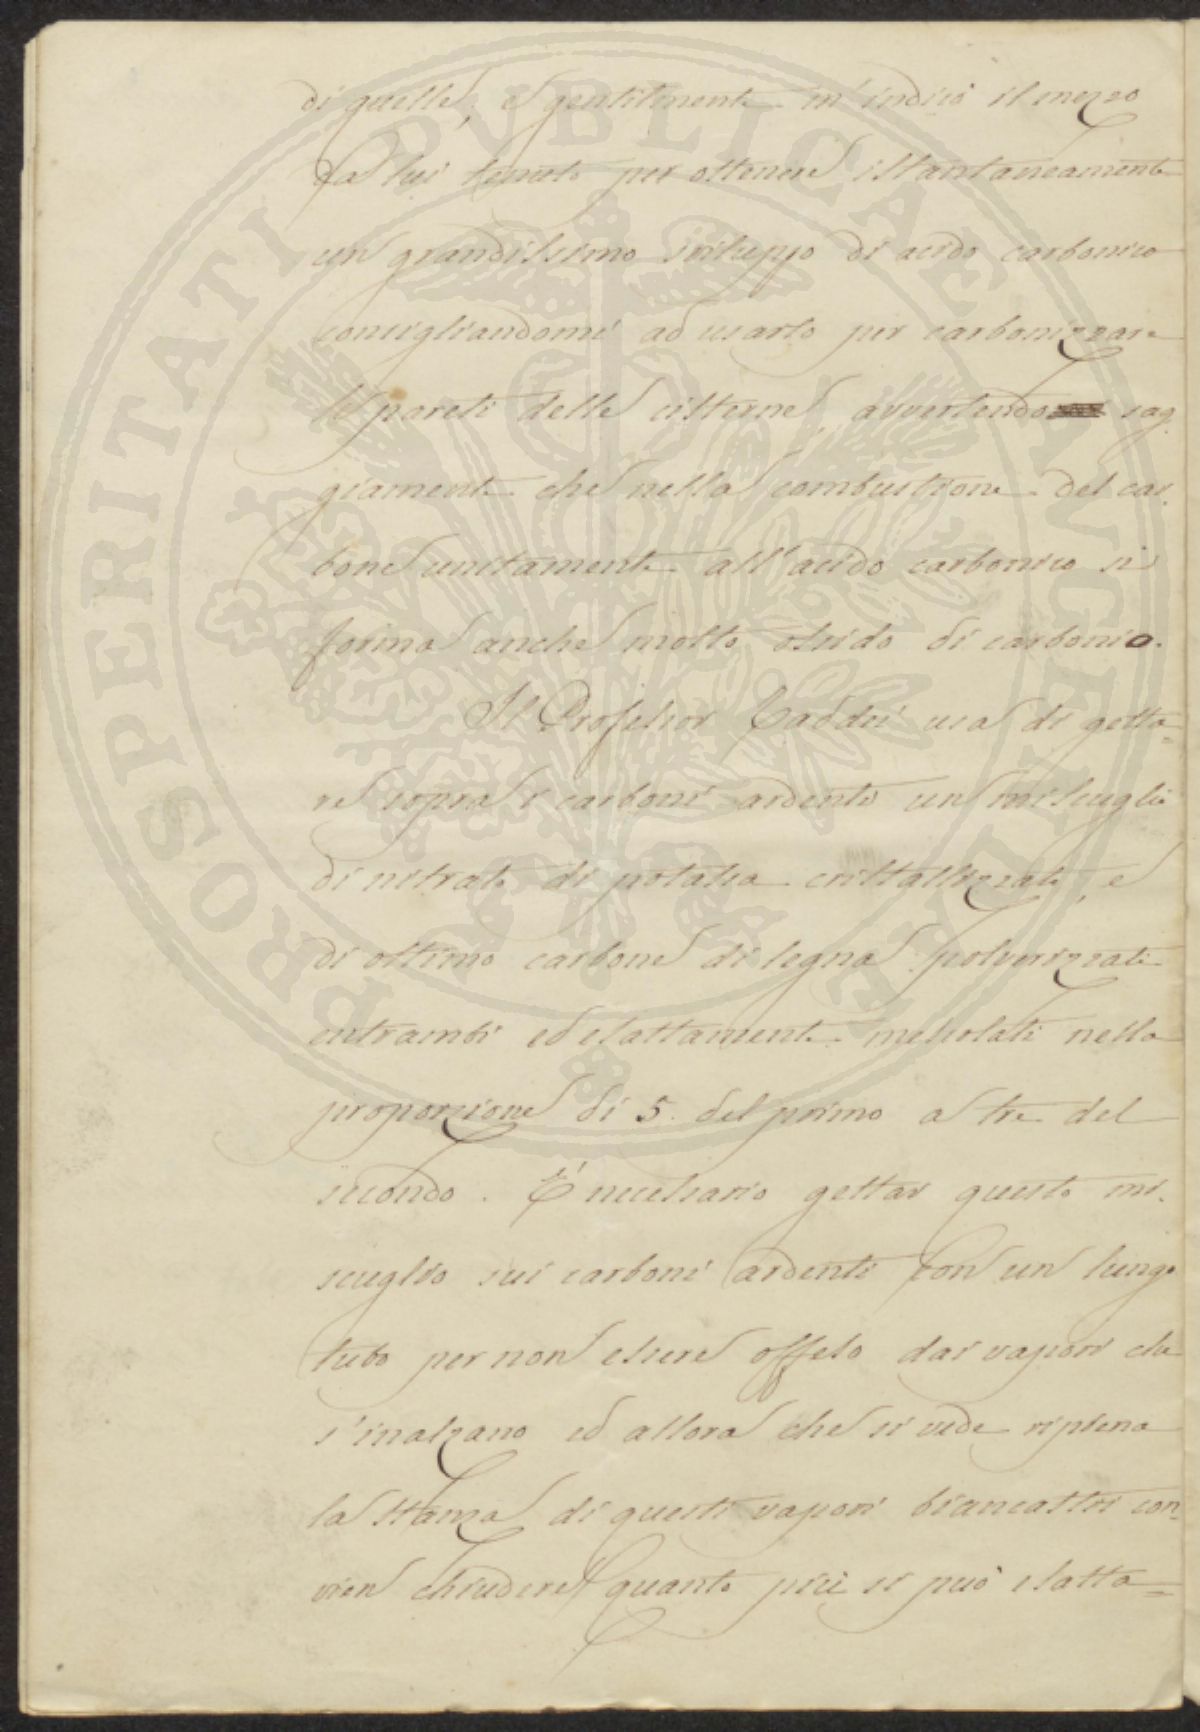 di quelle, e gentilmente m'indicò il mezzo
da lui tenuto per ottenere istantaneamente
un grandissimo sviluppo di acido carbonico
consigliandomi ad usarlo per carbonizzare
le pareti delle cisterne, avvertendo sag
giamente che nella combustione del car
bone unitamente all'acido carbonico si
forma anche molto ossido di carbonio.
Il Professor Taddei usa di getta=
re sopra i carboni ardenti un miscuglio
di nitrato di potassa cristallizzato, e
di ottimo carbone di legna polverizzati
entrambi ed esattamente mescolati nella
proporzione di 5. del primo a tre del
secondo. È necessario gettar questo mi.
scuglio sui carboni ardenti con un lungo
tubo per non essere offeso dai vapori che
s'inalzano ed allora che si vede ripiena
la stanza di questi vapori biancastri con
vien chiudere quanto più si può esatta=
PROSPERITATI PUBLICAE AUGENDAE